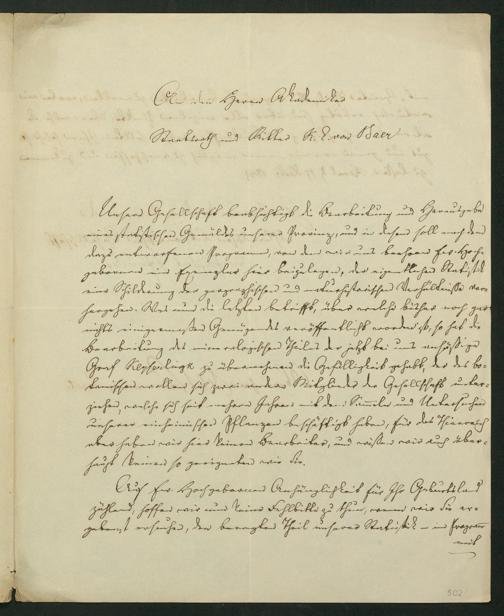 An den Herrn Akademiker
Staatsrath und Ritter K. E. von Baer
Unsere Gesellschaft beabsichtigt die Bearbeitung und Herausgabe
eines statistischen Gemäldes unserer Provinz, und in diesem soll nach dem
dazu entworfenen Programm, von dem wir uns beehren Ew. Hoch-
geboren ein Exemplar hier beizulegen, der eigentlichen Statistik
eine Schilderung der geographischen und naturhistorischen Verhältnisse vor-
hergehen. Was nun die letzten betrifft, über welche bisher noch gar
nichts einigermaßen Genügendes veröffentlicht worden ist, so hat die
Bearbeitung des mineralogischen Theiles der jetzt bei uns ansässige
Graf Keyserlingk zu übernehmen die Gefälligkeit gehabt, der des bo-
tanischen wollen sich zwei andere Mitglieder der Gesellschaft unter-
ziehen, welche sich seit mehren Jahren mit dem Sammeln und Untersuchen
unserer einheimischen Pflanzen beschäftigt haben, für das Thierreich
aber haben wir hier keinen Bearbeiter, und wissen wir auch über-
haupt keinen so geeigneten wie Sie.
Auf Ew. Hochgeboren Anhänglichkeit für Ihr Geburtsland
zählend, hoffen wir nun keine Fehlbitte zu thun, wenn wir Sie er-
gebenst ersuchen, den besagten Theil unserer Statistik – im Programm
502